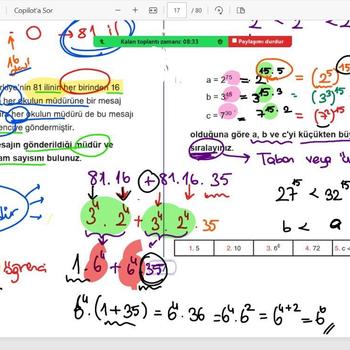 Copilot'a Sor
17 / 80
Kalan toplantı zamanı: 08:33 Paylaşımı durdur
81 il
rkiye'nin 81 ilinin her birinden 16
her okulun müdürüne bir mesaj
okulun müdürü de bu mesajı
enciye göndermiştir.
esajın gönderildiği müdür ve
am sayısını bulunuz.
81.16 + 81.16.35
3⁴.2⁴ + 3⁴.2⁴.35
1.6⁴ + 6⁴.35
öğrenci
6⁴.(1+35) = 6⁴.36 = 6⁴.6² = 6⁴⁺² = 6⁶
a = 2⁷⁵ = 2¹⁵·⁵ = (2⁵)¹⁵
b = 3⁴⁵ = 3¹⁵·³ = (3³)¹⁵
c = 7³⁰ = 7¹⁵·² = (7²)¹⁵
olduğuna göre a, b ve c'yi küçükten büy
sıralayınız.
Taban veya
27¹⁵ < 32¹⁵
b < a
1. 5 2. 10 3. 6⁶ 4. 72 5. c <